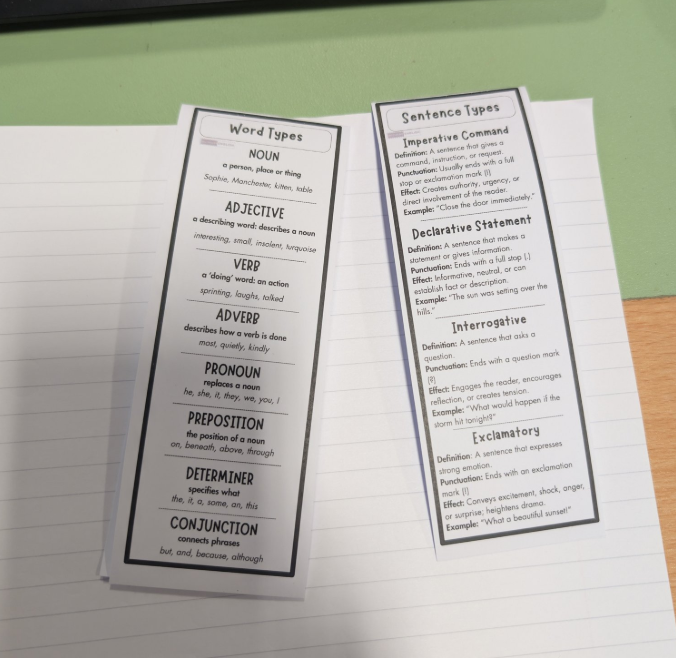 Word Types
NOUN
a person, place or thing
Sophie, Manchester, kitten, table
ADJECTIVE
a describing word: describes a noun
interesting, small, insolent, turquoise
VERB
a 'doing' word: an action
sprinting, laughs, talked
ADVERB
describes how a verb is done
most, quietly, kindly
PRONOUN
replaces a noun
he, she, it, they, we, you, I
PREPOSITION
the position of a noun
on, beneath, above, through
DETERMINER
specifies what
the, it, a, some, an, this
CONJUNCTION
connects phrases
but, and, because, although
Sentence Types
Imperative Command
Definition: A sentence that gives a
command, instruction, or request.
Punctuation: Usually ends with a full
stop or exclamation mark (!)
Effect: Creates authority, urgency, or
direct involvement of the reader.
Example: "Close the door immediately."
Declarative Statement
Definition: A sentence that makes a
statement or gives information.
Punctuation: Ends with a full stop (.)
Effect: Informative, neutral, or can
establish fact or description.
Example: "The sun was setting over the
hills."
Interrogative
Definition: A sentence that asks a
question.
Punctuation: Ends with a question mark
(?)
Effect: Engages the reader, encourages
reflection, or creates tension.
Example: "What would happen if the
storm hit tonight?"
Exclamatory
Definition: A sentence that expresses
strong emotion.
Punctuation: Ends with an exclamation
mark (!)
Effect: Conveys excitement, shock, anger,
or surprise; heightens drama.
Example: "What a beautiful sunset!"